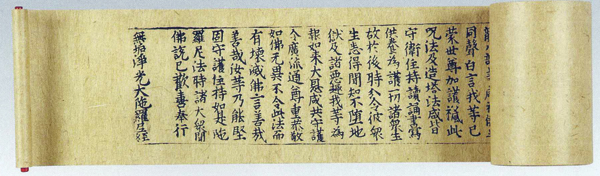 同聲白言我等已
蒙世尊加護授此
呪法及造塔法咸皆
守衛住持讀誦書寫
供養為護一切諸衆生
故於後時分令彼衆
生悉得聞知不墮地
獄及諸惡趣我等為
報如來大恩咸共守護
令廣流通尊重恭敬
如佛無異不令此法而
有壞滅佛言善哉
善哉汝等乃能堅
固守護住持如是陀
羅尼法時諸大衆聞
佛說已歡喜奉行
無垢淨光大陀羅尼經